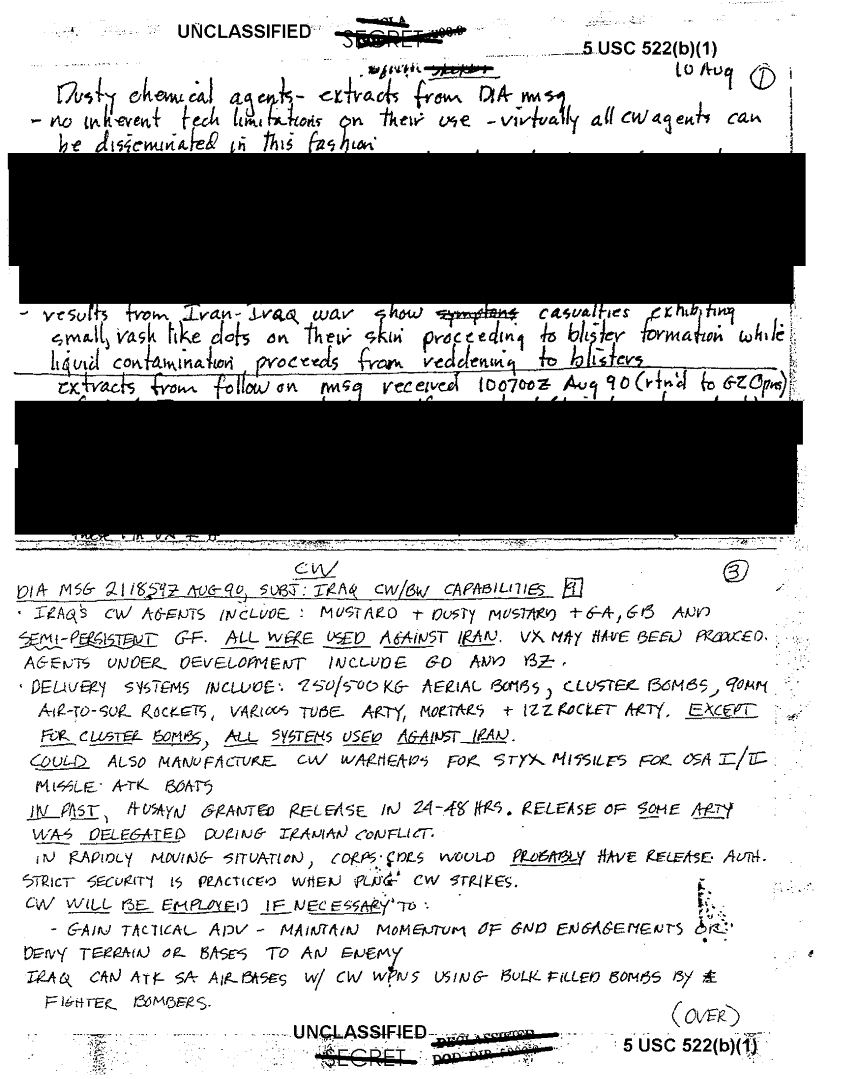 UNCLASSIFIED
SECRET
5 USC 522(b)(1)
10 Aug ①
Dusty chemical agents - extracts from DIA msg
- no inherent tech limitations on their use - virtually all CW agents can
be disseminated in this fashion
- results from Iran-Iraq war show symptoms casualties exhibiting
small, rash like dots on their skin proceeding to blister formation while
liquid contamination proceeds from reddening to blisters
extracts from follow on msg received 100700Z Aug 90 (rtn'd to G2 Opns)
CW
③
DIA MSG 211859Z AUG 90, SUBJ: IRAQ CW/BW CAPABILITIES
· IRAQ'S CW AGENTS INCLUDE: MUSTARD + DUSTY MUSTARD + GA, GB AND
SEMI-PERSISTENT GF. ALL WERE USED AGAINST IRAN. VX MAY HAVE BEEN PRODUCED.
AGENTS UNDER DEVELOPMENT INCLUDE GD AND BZ.
· DELIVERY SYSTEMS INCLUDE: 250/500KG AERIAL BOMBS, CLUSTER BOMBS, 90MM
AIR-TO-SUR ROCKETS, VARIOUS TUBE ARTY, MORTARS + 122 ROCKET ARTY. EXCEPT
FOR CLUSTER BOMBS, ALL SYSTEMS USED AGAINST IRAN.
COULD ALSO MANUFACTURE CW WARHEADS FOR STYX MISSILES FOR OSA I/II
MISSLE ATK BOATS
IN PAST, HUSAYN GRANTED RELEASE IN 24-48 HRS. RELEASE OF SOME ARTY
WAS DELEGATED DURING IRANIAN CONFLICT.
IN RAPIDLY MOVING SITUATION, CORPS CDRS WOULD PROBABLY HAVE RELEASE AUTH.
STRICT SECURITY IS PRACTICED WHEN PLNG CW STRIKES.
CW WILL BE EMPLOYED IF NECESSARY TO:
- GAIN TACTICAL ADV - MAINTAIN MOMENTUM OF GND ENGAGEMENTS OR
DENY TERRAIN OR BASES TO AN ENEMY
IRAQ CAN ATK SA AIR BASES W/ CW WPNS USING BULK FILLED BOMBS BY
FIGHTER BOMBERS.
(OVER)
UNCLASSIFIED
DECLASSIFIED
SECRET
5 USC 522(b)(1)